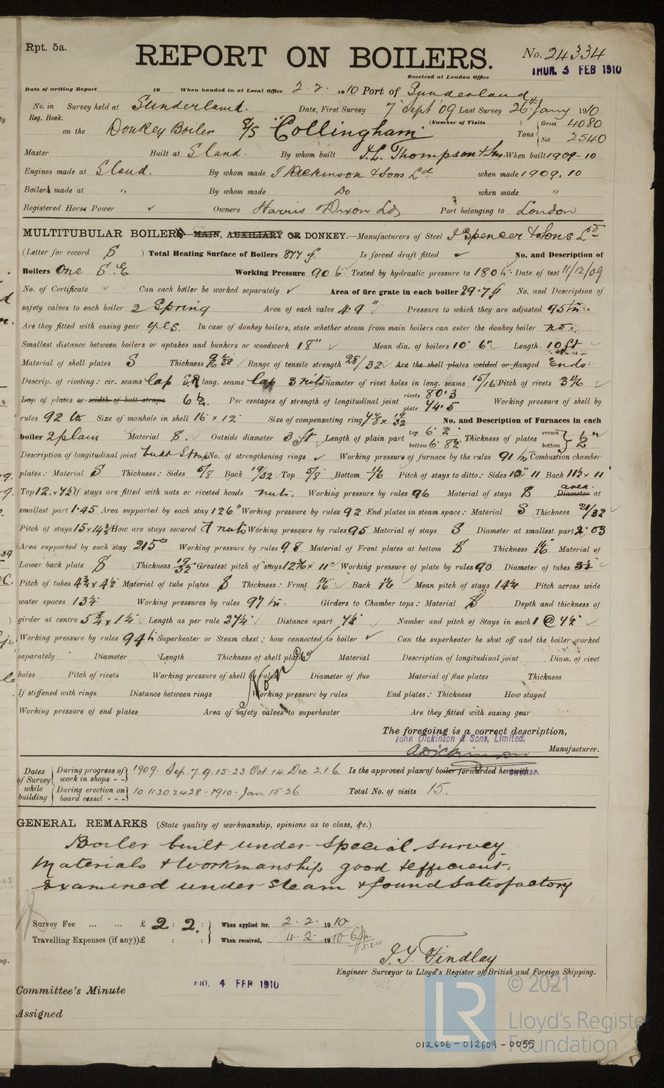 Rpt. 5a.
REPORT ON BOILERS.
No. 24334
Received at London Office
THUR. 3 FEB 1910
Date of writing Report 19 When handed in at Local Office 2.2.1910 Port of Sunderland
No. in Survey held at Sunderland Date, First Survey 7 Sept 09 Last Survey 26th Jany 1910
Reg. Book. (Number of Visits
on the Donkey Boiler S/S "Collingham" Tons { Gross 4080 Net 2540
Master Built at S'land. By whom built J.L. Thompson & Sons When built 1909-10
Engines made at S'land. By whom made J Dickinson & Sons Ld when made 1909.10
Boilers made at " By whom made Do when made "
Registered Horse Power Owners Harris & Dixon Ld Port belonging to London
MULTITUBULAR BOILERS MAIN, AUXILIARY OR DONKEY.—Manufacturers of Steel J Spencer & Sons Ld
(Letter for record S ) Total Heating Surface of Boilers 877 ϕ Is forced draft fitted No. and Description of
Boilers One S.E. Working Pressure 90 lb Tested by hydraulic pressure to 180 lb Date of test 11/12/09
No. of Certificate Can each boiler be worked separately Area of fire grate in each boiler 29.7 ϕ No. and Description of
safety valves to each boiler 2 Spring Area of each valve 4.9" Pressure to which they are adjusted 95 lb
Are they fitted with easing gear yes. In case of donkey boilers, state whether steam from main boilers can enter the donkey boiler no.
Smallest distance between boilers or uptakes and bunkers or woodwork 18" Mean dia. of boilers 10' 6" Length 10 ft
Material of shell plates S Thickness Range of tensile strength 28/32 Are the shell plates welded or flanged Ends
Descrip. of riveting: cir. seams Lap long. seams Lap 3 rivets Diameter of rivet holes in long. seams 15/16 Pitch of rivets 3 7/16
Lap of plates or width of butt straps 6 1/2 Per centages of strength of longitudinal joint rivets 80.3 plate 74.5 Working pressure of shell by
rules 92 lb Size of manhole in shell 16 x 12 Size of compensating ring No. and Description of Furnaces in each
boiler 2 plain Material S. Outside diameter 3 ft Length of plain part top 6' 2" bottom 6' 8 3/4 Thickness of plates crown bottom } 1/2"
Description of longitudinal joint No. of strengthening rings Working pressure of furnace by the rules 91 lb Combustion chamber
plates: Material S Thickness: Sides 5/8 Back 19/32 Top 5/8 Bottom Pitch of stays to ditto: Sides Back 11 1/2 x 11"
Top If stays are fitted with nuts or riveted heads nuts. Working pressure by rules 96 Material of stays S Diameter at area
smallest part 1.45 Area supported by each stay 126" Working pressure by rules 92 End plates in steam space: Material S Thickness 21/32
Pitch of stays How are stays secured nuts Working pressure by rules 95 Material of stays S Diameter at smallest part 2.03
Area supported by each stay 215 Working pressure by rules 98 Material of Front plates at bottom S Thickness Material of
Lower back plate S Thickness 19/32 Greatest pitch of stays Working pressure of plate by rules 90 Diameter of tubes
Pitch of tubes Material of tube plates S Thickness: Front Back Mean pitch of stays Pitch across wide
water spaces Working pressures by rules 97 lb Girders to Chamber tops: Material S Depth and thickness of
girder at centre Length as per rule Distance apart 7 1/2 Number and pitch of Stays in each 1 @
Working pressure by rules 94 lb Superheater or Steam chest; how connected to boiler Can the superheater be shut off and the boiler worked
separately Diameter Length Thickness of shell plates Material Description of longitudinal joint Diam. of rivet
holes Pitch of rivets Working pressure of shell by rules Diameter of flue Material of flue plates Thickness
If stiffened with rings Distance between rings Working pressure by rules End plates: Thickness How stayed
Working pressure of end plates Area of safety valves to superheater Are they fitted with easing gear
The foregoing is a correct description,
John Dickinson & Sons, Limited.
Manufacturer.
Dates of Survey while building { During progress of work in shops - - } 1909. Sep. 7. 9. 15-23 Oct 14. Dec. 2. 1. 6. Is the approved plan of boiler forwarded herewith
{ During erection on board vessel - - - } 10 11 20 24 28 - 1910 - Jan 15-26 Total No. of visits 15.
GENERAL REMARKS (State quality of workmanship, opinions as to class, &c.)
Boiler built under special survey
Materials & workmanship good & efficient.
Examined under steam & found satisfactory
Survey Fee ... ... £ 2 : 2. : } When applied for. 2.2.1910
Travelling Expenses (if any) £ : : } When received, 4.2.1910
J.T. Findlay
Engineer Surveyor to Lloyd's Register of British and Foreign Shipping.
Committee's Minute FRI. 4 FEB 1910
Assigned
LR
© 2021
Lloyd's Register
Foundation
012606-012609-0055